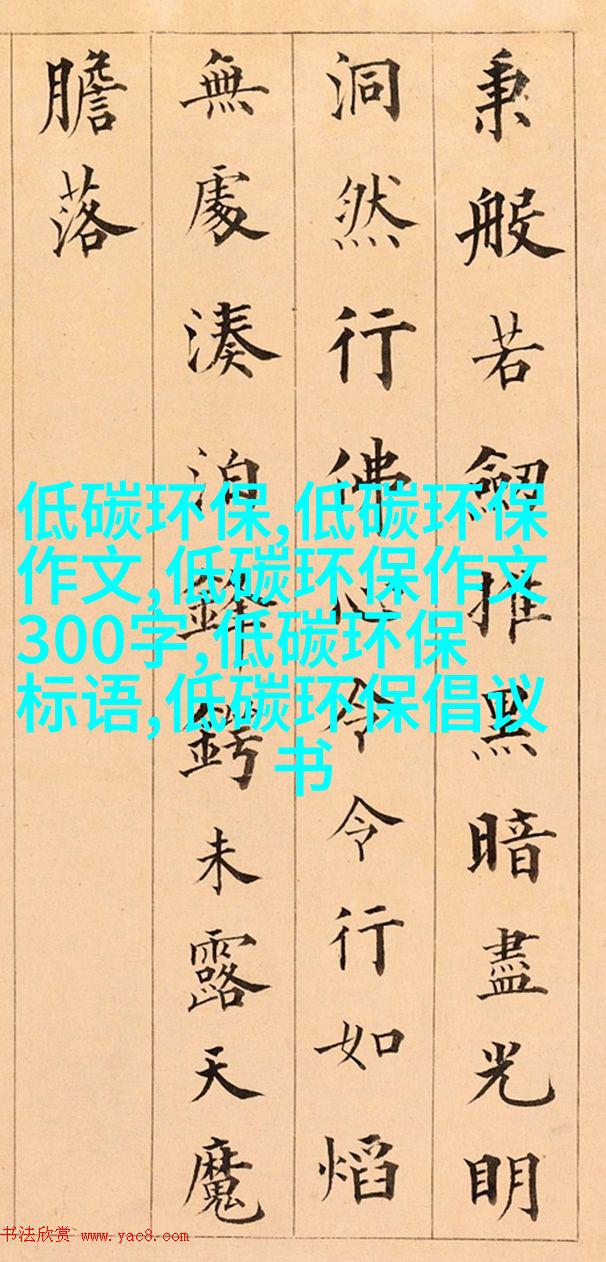 秉般若劒推黑暗盡光明
洞然行佛心令令行如熖
無處湊泊鋒鍔未露天魔
膽落
低碳环保,低碳环保
作文,低碳环保作文
300字,低碳环保
标语,低碳环保倡议
书
书法欣赏 www.yac8.com